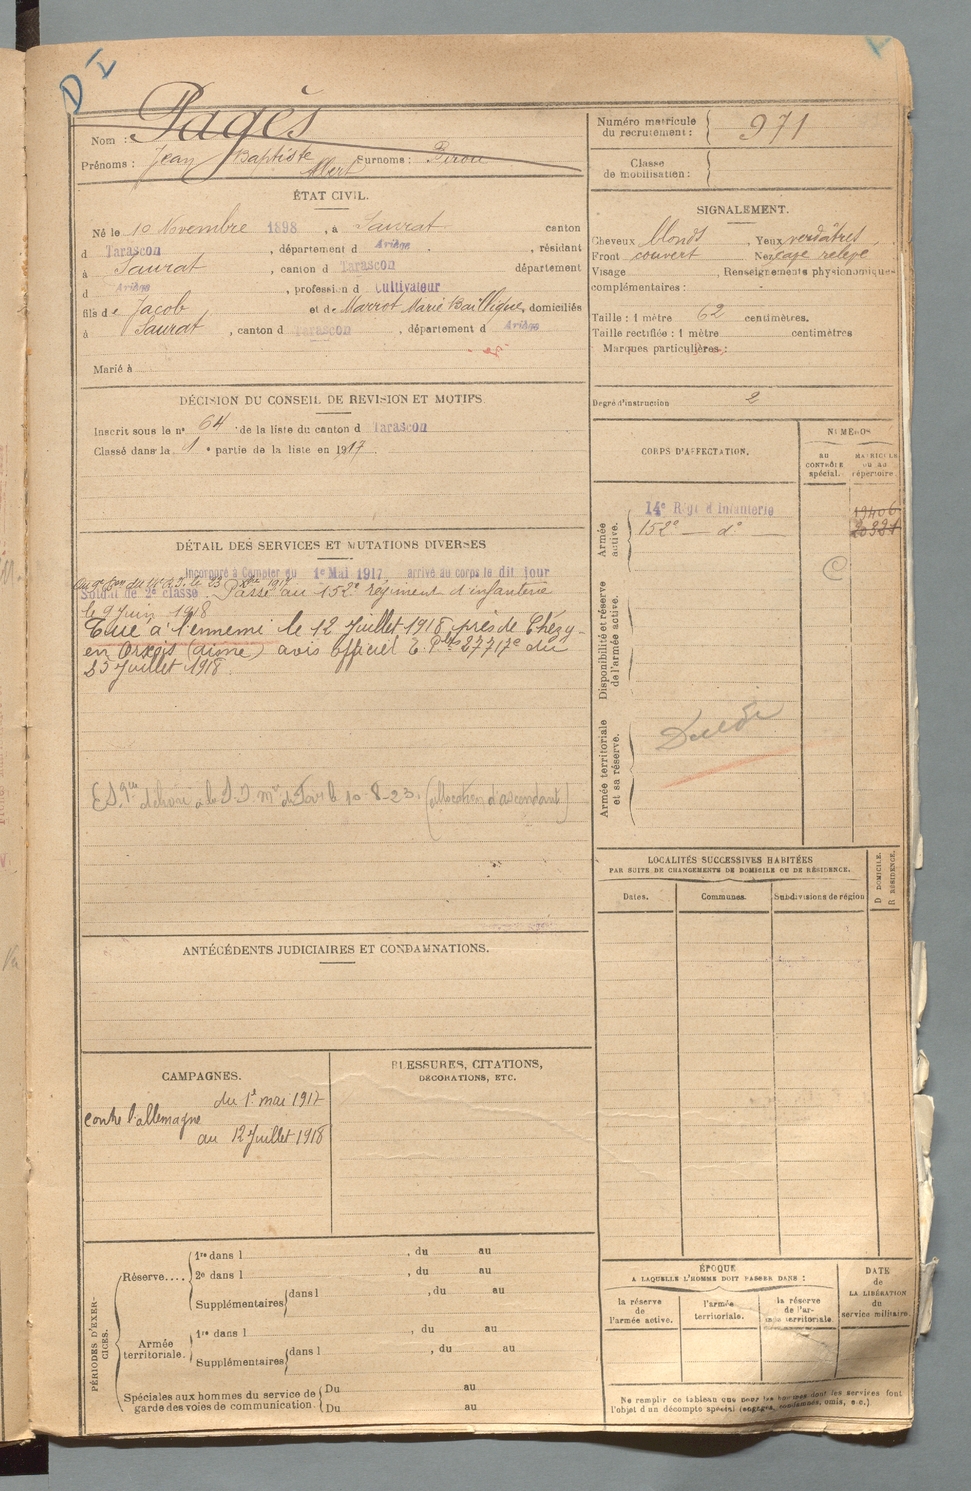 D I
Nom : Pagès
Prénoms : Jean Baptiste Albert Surnoms : Pirou
Numéro matricule du recrutement : 971
Classe de mobilisation :
ÉTAT CIVIL.
Né le 10 Novembre 1898, à Saurat canton
d Tarascon, département d Ariège, résidant
à Saurat, canton d Tarascon département
d Ariège, profession d Cultivateur
fils de Jacob et de Marrot Marie, domiciliés
à Saurat, canton d Tarascon, département d Ariège
Marié à
SIGNALEMENT.
Cheveux blonds. Yeux verdâtres
Front couvert Nez cave relevé
Visage Renseignements physionomiques
complémentaires :
Taille : 1 mètre 62 centimètres.
Taille rectifiée : 1 mètre centimètres
Marques particulières :
Degré d'instruction 2
DÉCISION DU CONSEIL DE REVISION ET MOTIFS.
Inscrit sous le n° 64 de la liste du canton d Tarascon
Classé dans la 1e partie de la liste en 1917
DÉTAIL DES SERVICES ET MUTATIONS DIVERSES
Incorporé à Compter du 1er Mai 1917 arrivé au corps le dit jour
Soldat de 2e classe. Passé au 152e régiment d'infanterie
le 9 juin 1918
Tué à l'ennemi le 12 Juillet 1918 près de Chézy-
en Orxois (aisne) avis officiel E. P. 27717e du
25 Juillet 1918.
10-8-23. (allocation d'ascendant)
CORPS D'AFFECTATION.
NUMÉROS
AU CONTRÔLE spécial.
MATRICULE OU AU répertoire.
Armée active.
14e Régt d'Infanterie 19406
152e — d° 20331
Disponibilité et réserve de l'armée active.
C
Armée territoriale et sa réserve.
Décédé
LOCALITÉS SUCCESSIVES HABITÉES
PAR SUITE DE CHANGEMENTS DE DOMICILE OU DE RÉSIDENCE.
Dates. Communes. Subdivisions de région
D DOMICILE.
R RÉSIDENCE.
ANTÉCÉDENTS JUDICIAIRES ET CONDAMNATIONS.
CAMPAGNES.
du 1er mai 1917
contre l'allemagne
au 12 Juillet 1918
BLESSURES, CITATIONS,
DÉCORATIONS, ETC.
PÉRIODES D'EXERCICES.
Réserve....
1re dans l , du au
2e dans l , du au
Supplémentaires dans l , du au
Armée territoriale.
1re dans l , du au
Supplémentaires dans l , du au
Spéciales aux hommes du service de
garde des voies de communication.
Du au
Du au
ÉPOQUE
A LAQUELLE L'HOMME DOIT PASSER DANS :
la réserve de l'armée active.
l'armée territoriale.
la réserve de l'armée territoriale.
DATE de LA LIBÉRATION du service militaire.
Ne remplir ce tableau que pour les hommes dont les services font
l'objet d'un décompte spécial (engagés, condamnés, omis, e.c.)